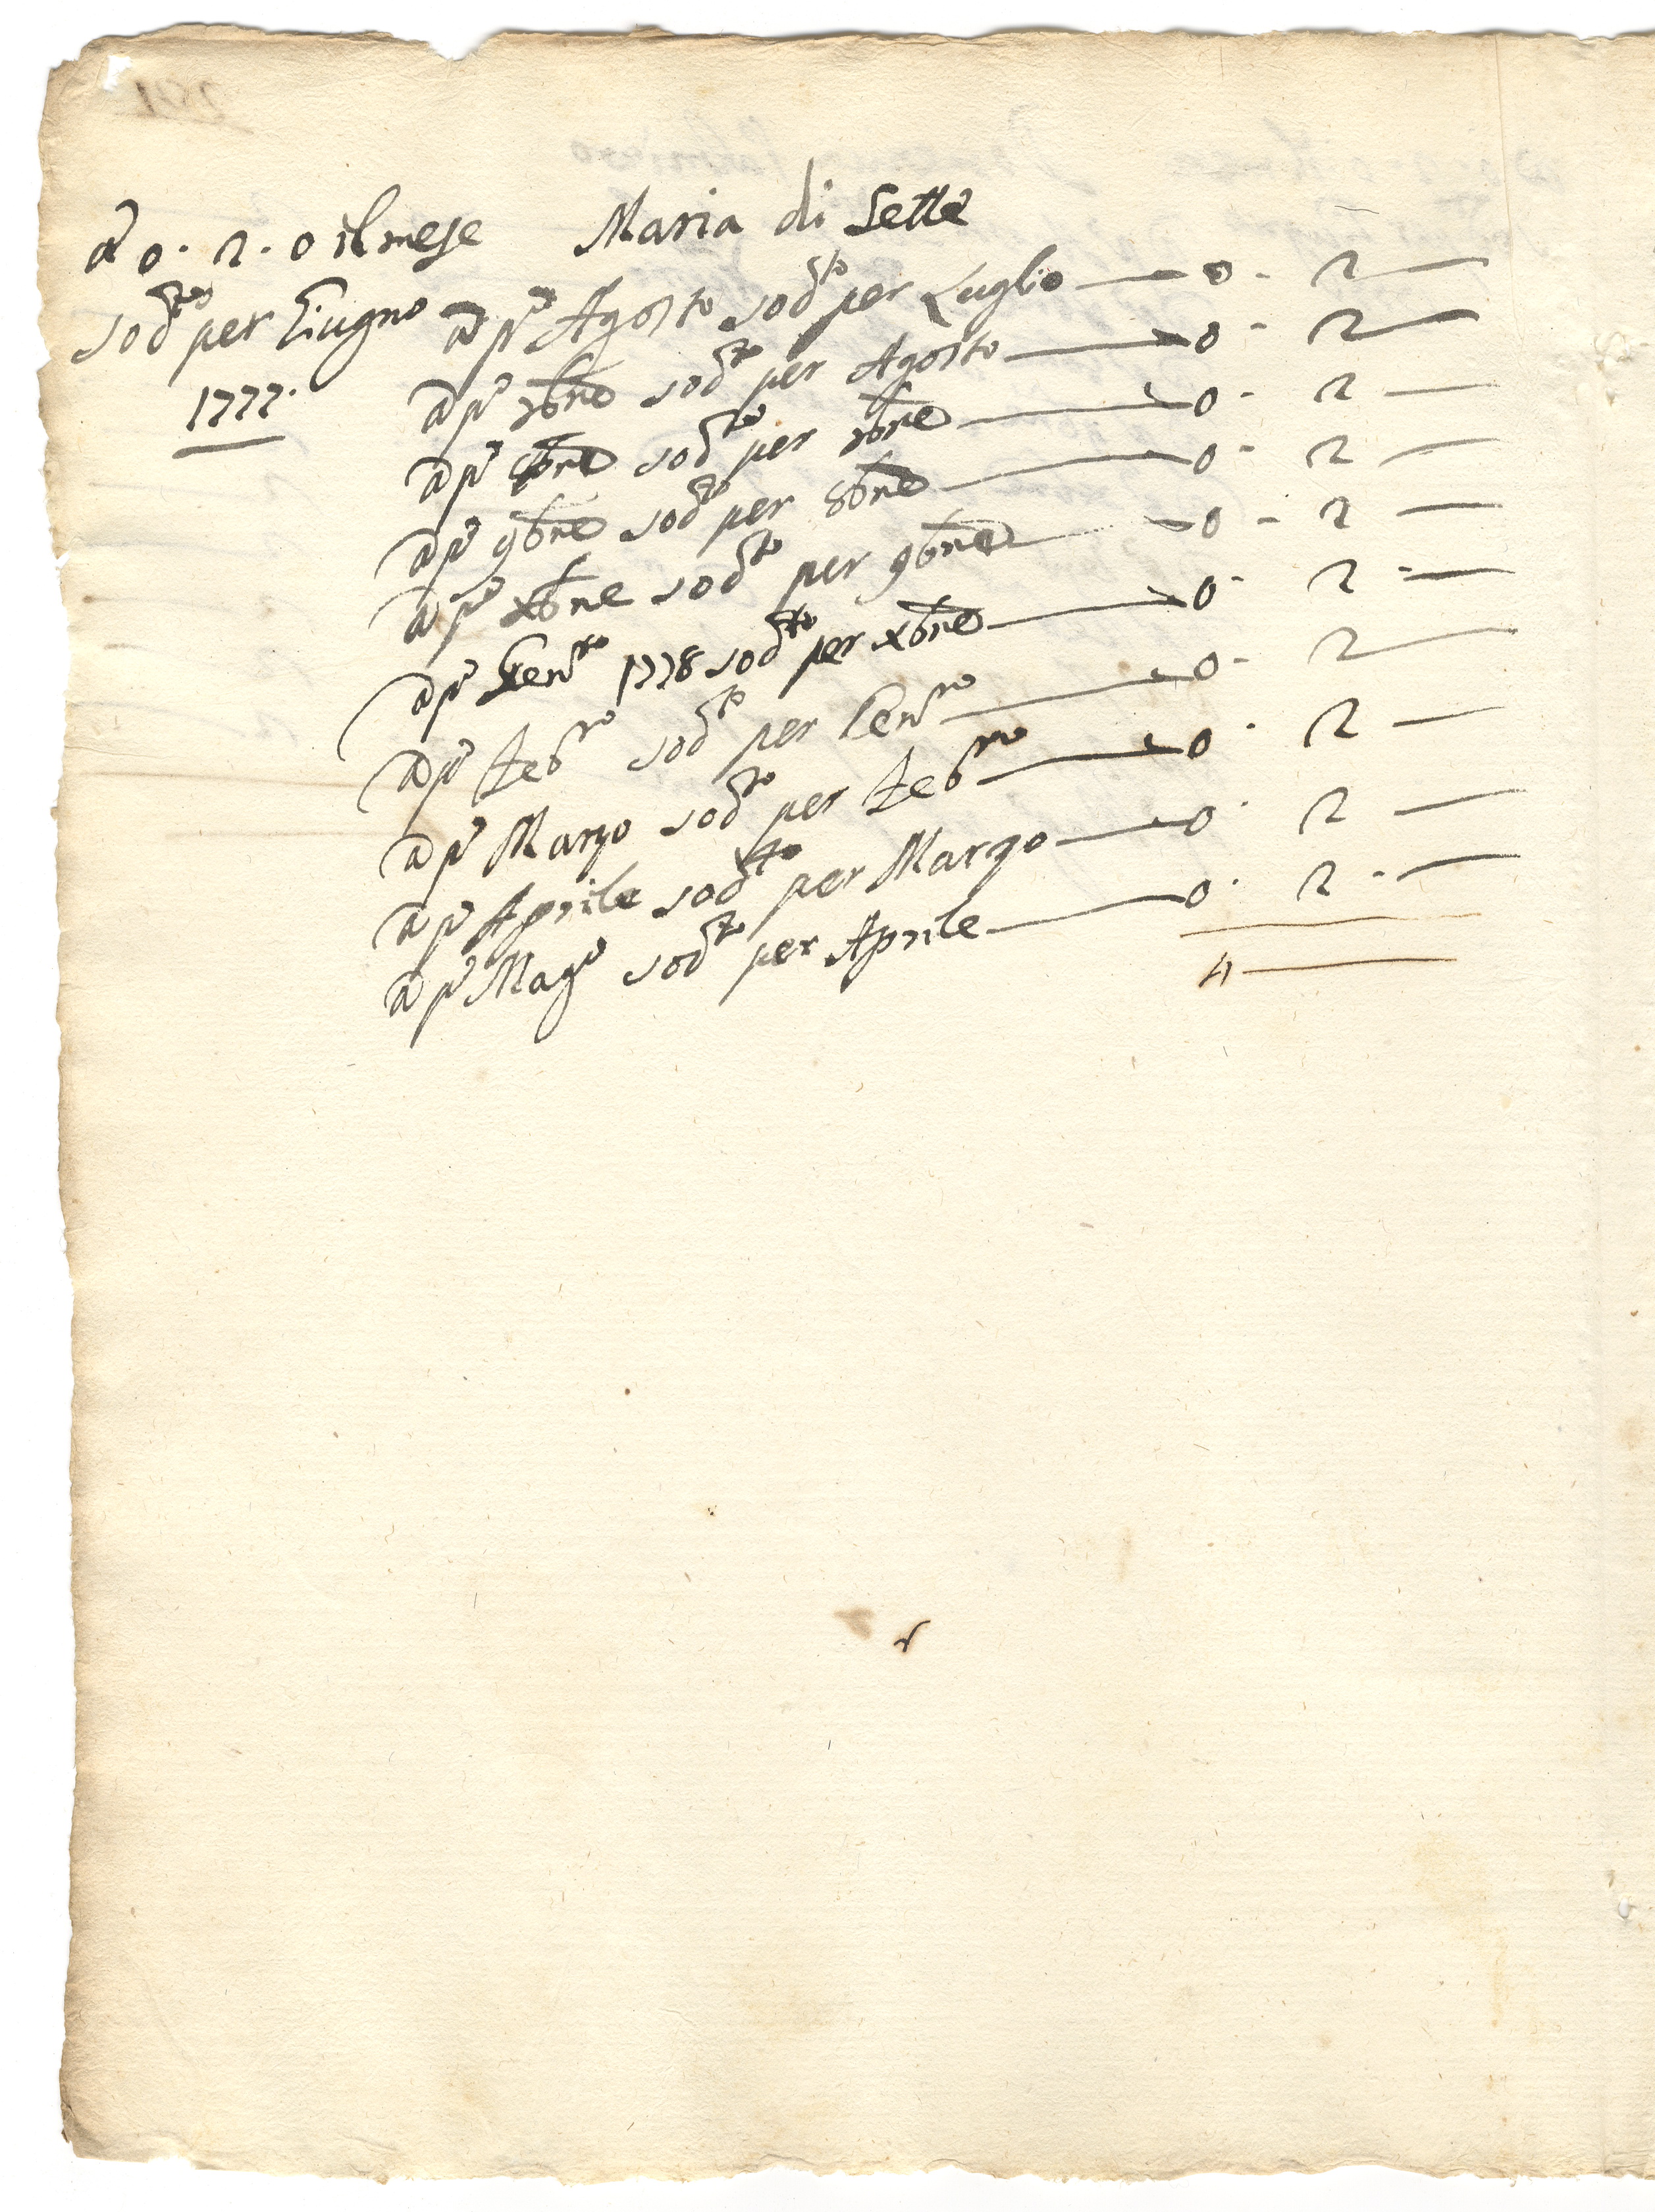 a 0. 2. 0 il mese Maria di Sette
sod.to per Giugno
1777.
a p.o Agosto sod.to per Luglio — 0 - 2 —
a p.o 7bre sod.to per Agosto — 0 - 2 —
a p.o 8bre sod.to per 7bre — 0 - 2 —
a p.o 9bre sod.to per 8bre — 0 - 2 —
a p.o xbre sod.to per 9bre — 0 - 2 —
a p.o Gen.ro 1778 sod.to per xbre — 0 - 2 - —
a p.o Feb.ro sod.to per Gen.ro — 0 - 2 —
a p.o Marzo sod.to per Feb.ro — 0 . 2 —
a p.o Aprile sod.to per Marzo — 0 . 2 —
a p.o Mag.o sod.to per Aprile — 0 . 2 . —
4 —